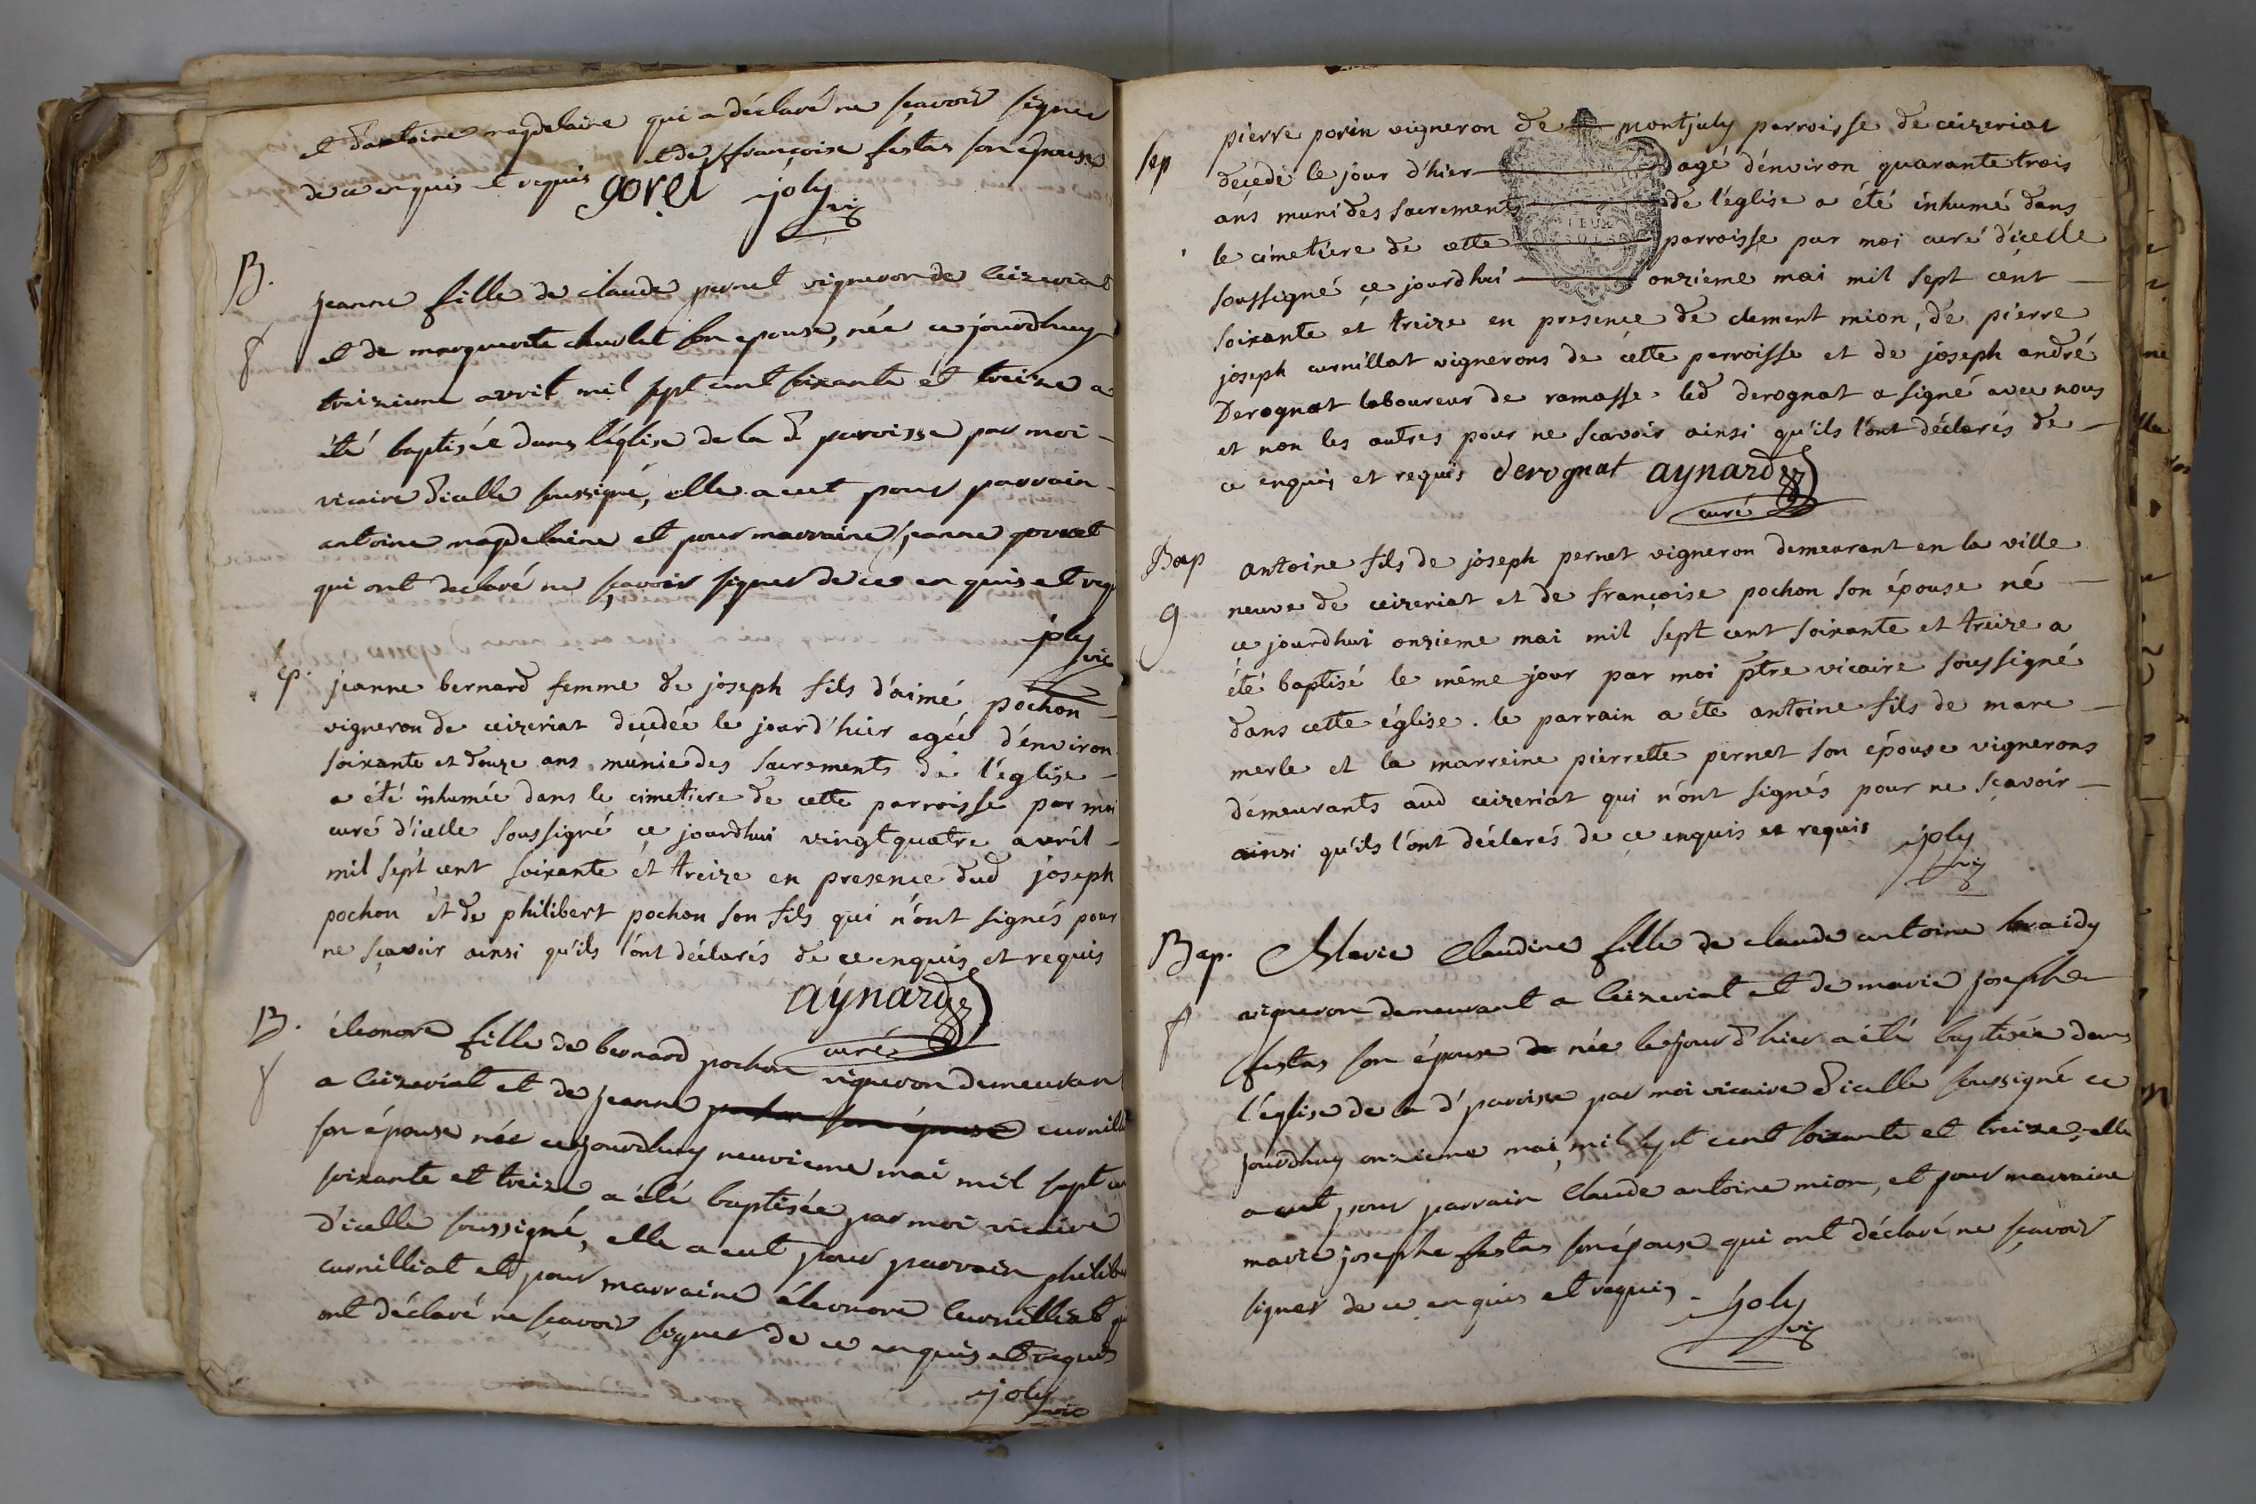 et d'antoine magdelaine qui a déclaré ne sçavoir signer
et de françoise festas son épouse
de ce enquis et requis gorel joly
vic
B.
jeanne fille de claude pernet vigneron de Ceizeriat
et de marguerite chuslet son epouse, née ce jourdhuy
treizieme avril mil sept cent soixante et treize a
été baptisée dans l'église de la d. paroisse par moi
vicaire d'icelle soussigné, elle a eut pour parrain
antoine magdelaine et pour marraine jeanne
qui ont declaré ne sçavoir signer de ce enquis et req
joly
vic
jeanne bernard femme de joseph fils d'aimé pochon
vigneron de ceizeriat décédée le jour d'hier agée d'environ
soixante et douze ans munie des sacrements de l'église
a été inhumée dans le cimetiere de cette parroisse par moi
curé d'icelle soussigné ce jourdhui vingtquatre avril
mil sept cent soixante et treize en presence dud joseph
pochon et de philibert pochon son fils qui n'ont signés pour
ne sçavoir ainsi qu'ils l'ont déclarés de ce enquis et requis
aynard
curé
B.
éleonore fille de bernard pochon vigneron demeuran
a Ceizeriat et de jeanne pochon son épouse curnilli
son épouse née ce jourdhuy neuvieme mai mil sept cen
soixante et treize a été baptisée par moi vicaire
d'icelle soussigné, elle a eut pour parrain philib
curnilliat et pour marraine éléonore Curnilliat q
ont déclaré ne sçavoir signer de ce enquis et requis
joly
vic
Sep
pierre porin vigneron de montjuly parroisse de ceizeriat
décédé le jour d'hier agé d'environ quarante trois
ans muni des sacrements de l'église a été inhumé dans
le cimetiere de cette parroisse par moi curé d'icelle
soussigné ce jourdhui onzieme mai mil sept cent
soixante et treize en presence de clement mion, de pierre
joseph curnillat vignerons de cette parroisse et de joseph andré
Derognat laboureur de ramasse. led derognat a signé avec nous
et non les autres pour ne scavoir ainsi qu'ils l'ont déclarés de
ce enquis et requis derognat aynard
curé
Bap
9
antoine fils de joseph pernet vigneron demeurant en la ville
neuve de ceizeriat et de françoise pochon son épouse né
ce jourdhui onzieme mai mil sept cent soixante et treize a
été baptisé le même jour par moi ptre vicaire soussigné
dans cette église. le parrain a éte antoine fils de marc
merle et la marreine pierrette pernet son épouse vignerons
demeurants aud ceizeriat qui n'ont signés pour ne sçavoir
ainsi qu'ils l'ont déclarés de ce enquis et requis joly
vic
Bap.
Marie Claudine fille de claude antoine braidy
vigneron demeurant a Ceizeriat et de marie josephe
festas son épouse née le jour d'hier a été baptisée dans
l'église de la d' paroisse par moi vicaire d'icelle soussigné ce
jourdhuy onzieme mai mil sept cent soixante et treize, elle
a eut pour parrain Claude antoine mion, et pour marraine
marie josephe festas son épouse qui ont déclaré ne sçavoir
signer de ce enquis et requis. joly
vic